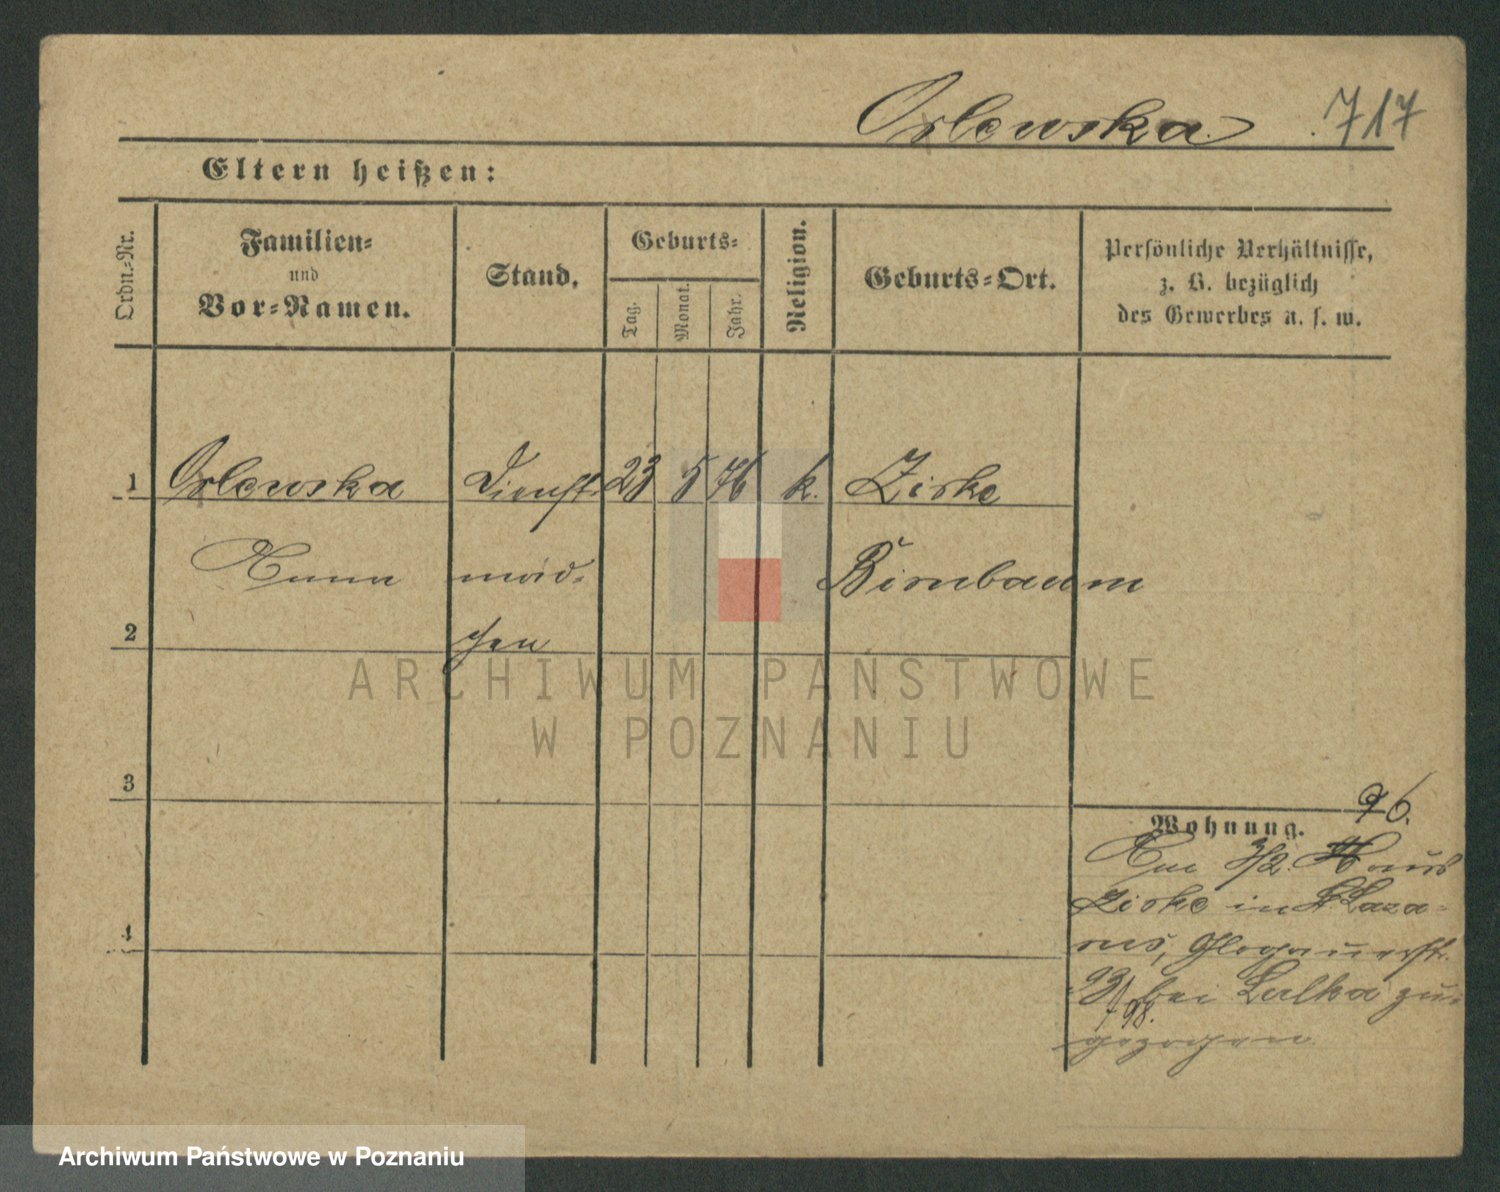 Orlewska 717
Eltern heißen:
Ordn.-Nr.
Familien-
und
Vor-Namen.
Stand.
Geburts-
Tag.
Monat.
Jahr.
Religion.
Geburts-Ort.
Persönliche Verhältnisse,
z. B. bezüglich
des Gewerbes u. s. w.
1 Orlewska Dienst 23 5 76 k. Zirke
Anna mäd- Birnbaum
2 chen
ARCHIWUM PAŃSTWOWE
W POZNANIU
3
96.
Wohnung.
Am 3/2. aus
Zirke in St Laza-
4
rus, Glogauerst.
23 bei Lulka zu-
98.
gezogen
Archiwum Państwowe w Poznaniu